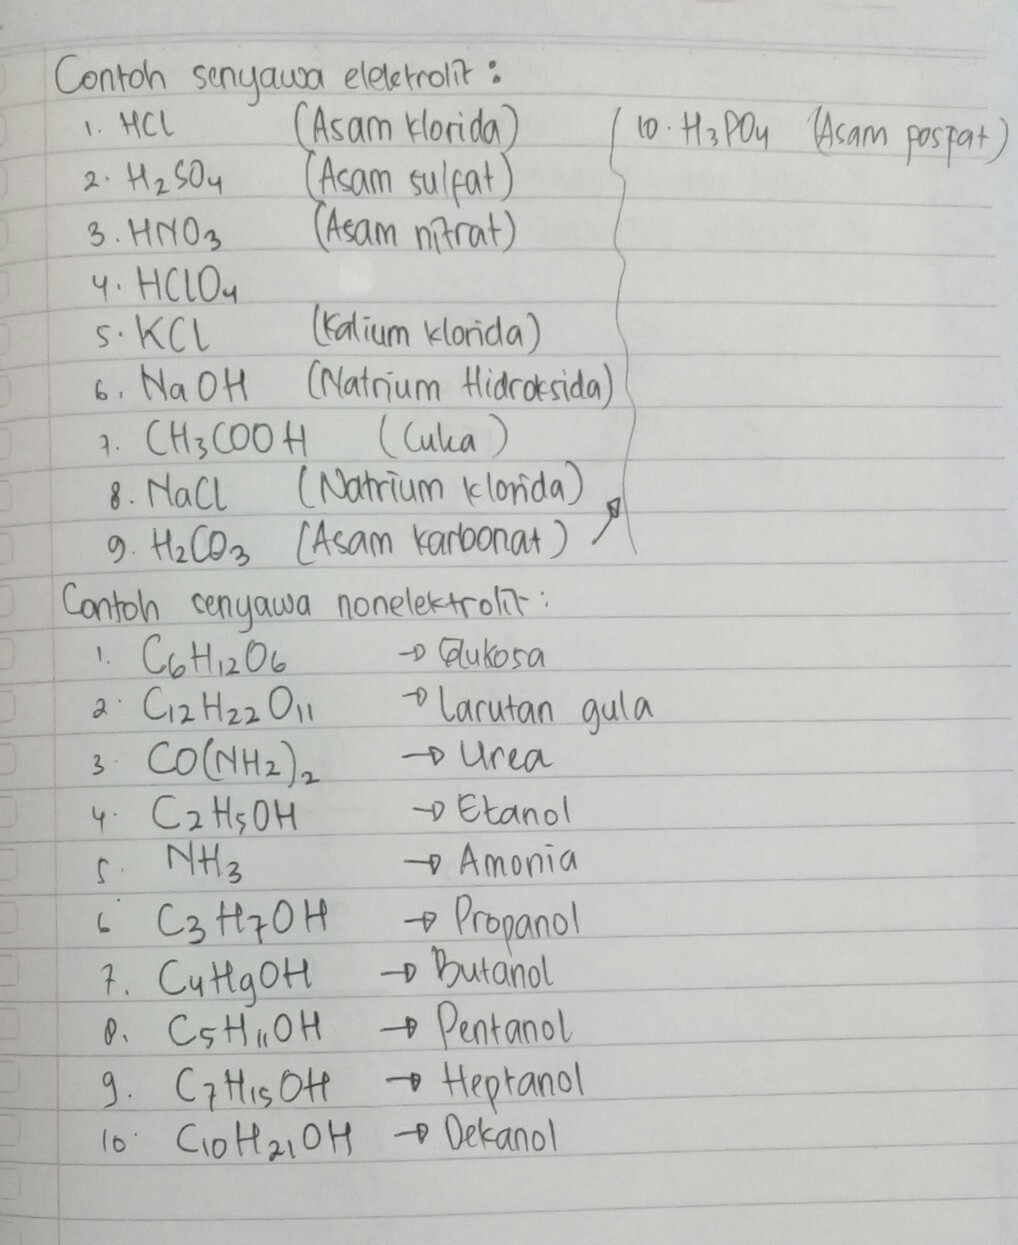 Contoh senyawa elektrolit :
1. HCl (Asam klorida)
2. H2SO4 (Asam sulfat)
3. HNO3 (Asam nitrat)
4. HClO4
5. KCl (Kalium klorida)
6. NaOH (Natrium Hidroksida)
7. CH3COOH (Cuka)
8. NaCl (Natrium klorida)
9. H2CO3 (Asam karbonat)
10. H3PO4 (Asam pospat)
Contoh senyawa nonelektrolit :
1. C6H12O6 → Glukosa
2. C12H22O11 → Larutan gula
3. CO(NH2)2 → Urea
4. C2H5OH → Etanol
5. NH3 → Amonia
6. C3H7OH → Propanol
7. C4H9OH → Butanol
8. C5H11OH → Pentanol
9. C7H15OH → Heptanol
10. C10H21OH → Dekanol